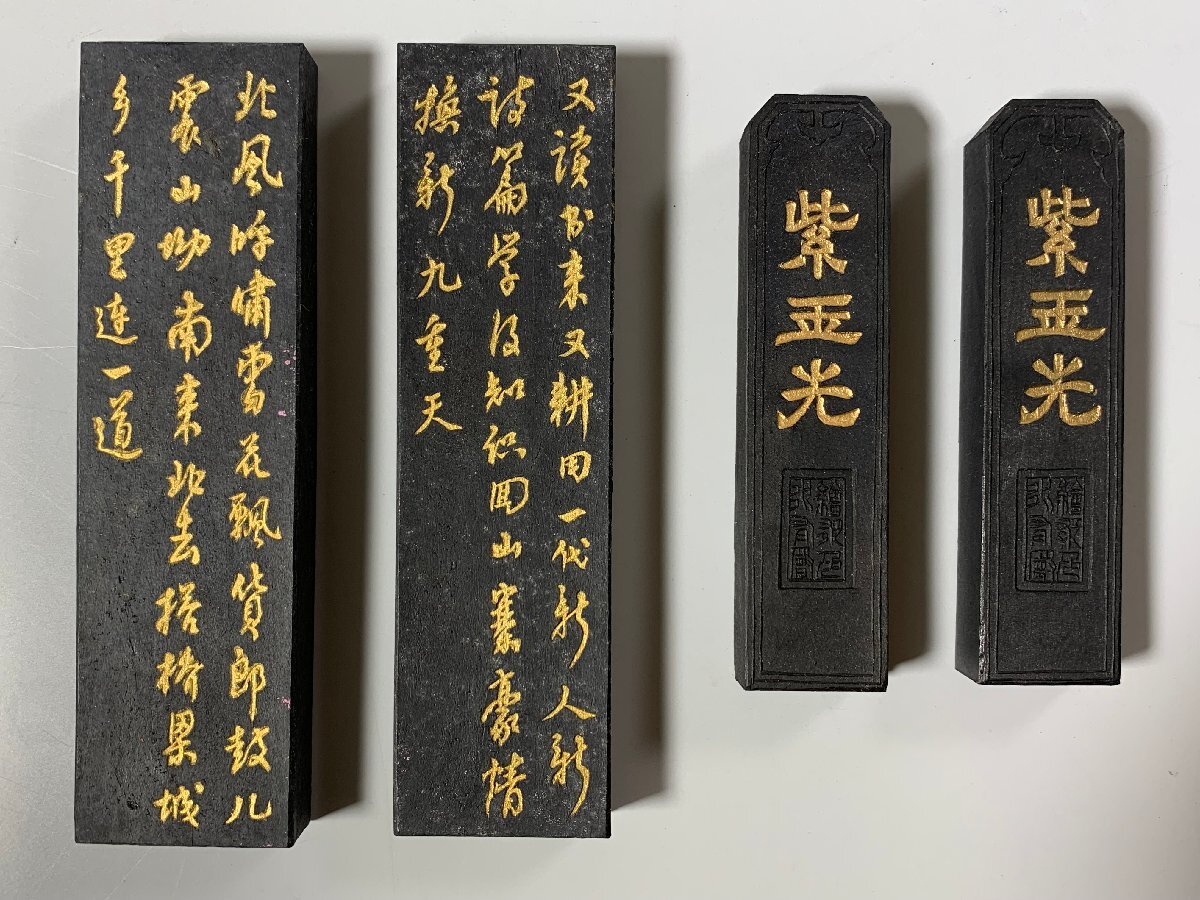 北风呼啸雪花飘货郎鼓儿
震山坳南来北去搭桥梁城
乡千里连一道
又讀书来又耕田一代新人新
诗篇学得知识回山寨豪情
换新九重天
紫玉光
紫玉光